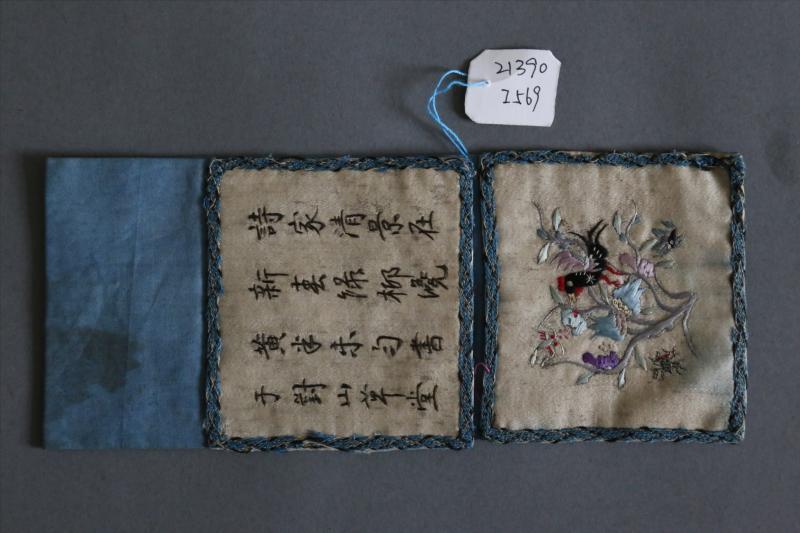 21390
I569
詩家清景在
新春綠柳纔
黃半未勻書
于對山草堂